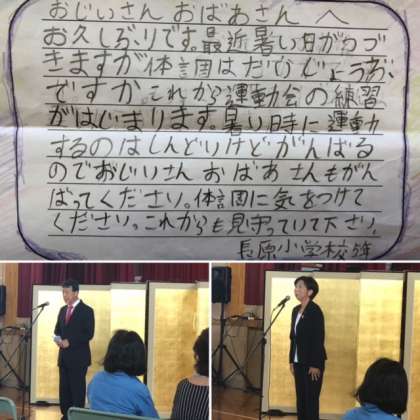 おじいさん おばあさん へ
お久しぶりです。最近暑い日がつづ
きますが体調はだいじょうぶ
ですか これから運動会の練習
がはじまります。暑い時に運動
するのはしんどいけどがんばる
のでおじいさん おばあさんもがん
ばってください。体調に気をつけて
ください。これからも見守っていて下さい。
長原小学校5年